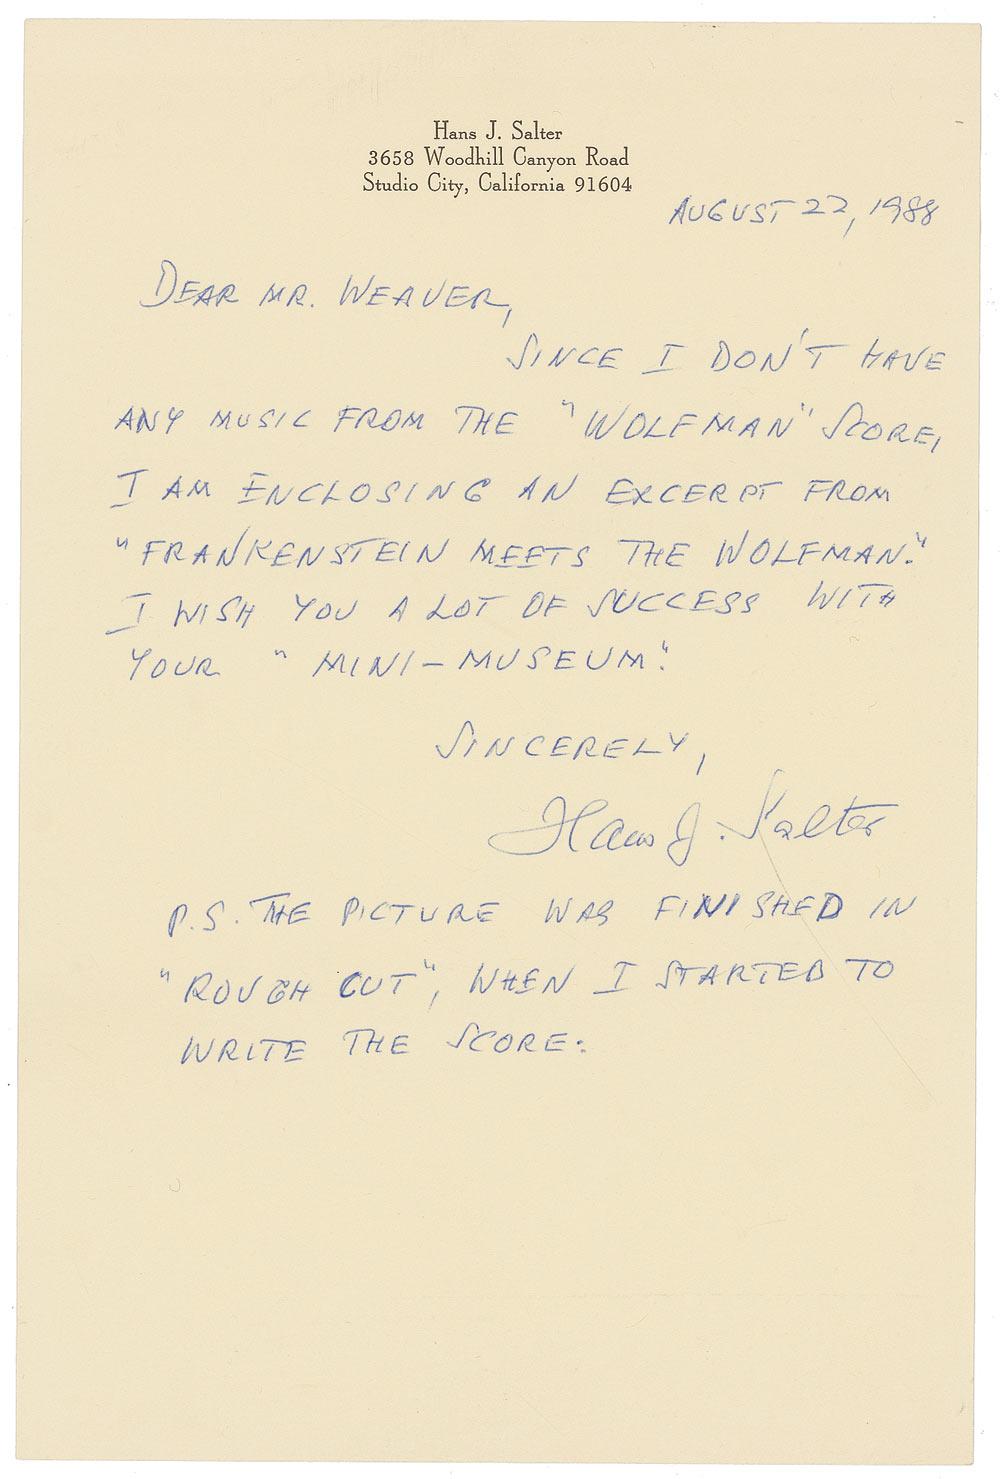 Hans J. Salter
3658 Woodhill Canyon Road
Studio City, California 91604
AUGUST 22, 1988
DEAR MR. WEAVER,
SINCE I DON'T HAVE
ANY MUSIC FROM THE "WOLFMAN" SCORE,
I AM ENCLOSING AN EXCERPT FROM
"FRANKENSTEIN MEETS THE WOLFMAN."
I WISH YOU A LOT OF SUCCESS WITH
YOUR "MINI-MUSEUM."
SINCERELY,
Hans J. Salter
P.S. THE PICTURE WAS FINISHED IN
"ROUGH CUT", WHEN I STARTED TO
WRITE THE SCORE.